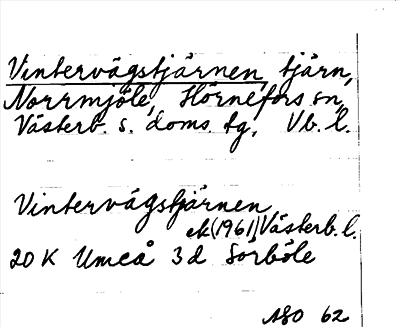 Vintervägstjärnen, tjärn,
Norrmjöle, Hörnefors sn,
Västerb. s. doms. tg, Vb. l.
Vintervägstjärnen
ek (1961) Västerb. l.
20 K Umeå 3d Sörböle
ASO 62